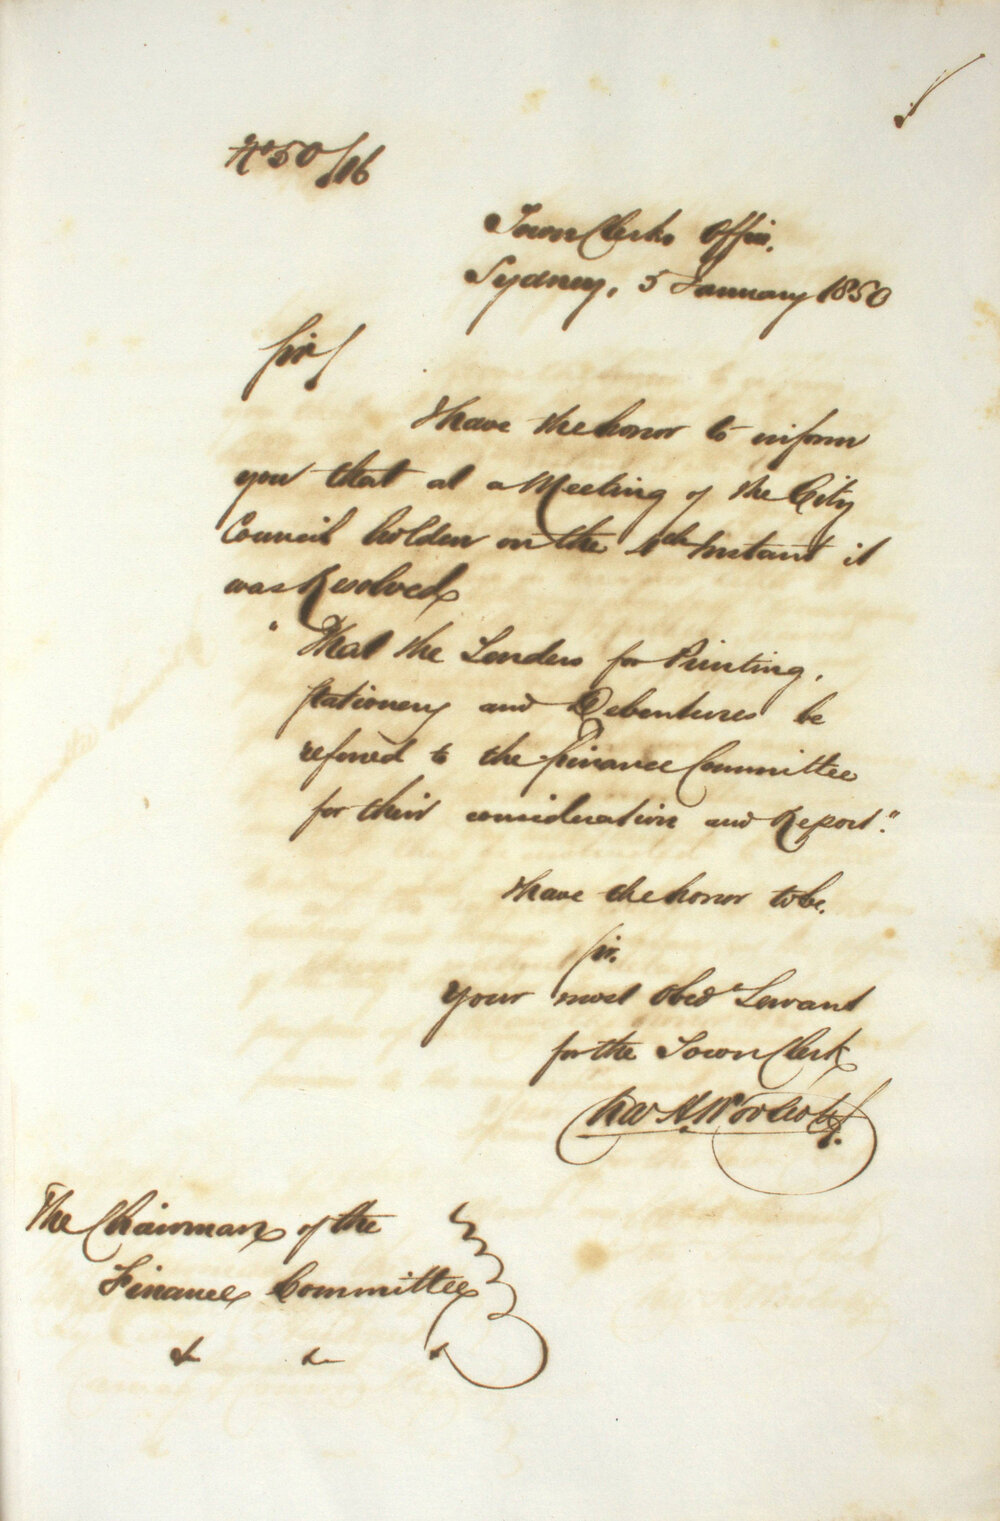 No 50/16
Town Clerks Office.
Sydney, 5 January 1850
Sir/
I have the honor to inform
you that at a Meeting of the City
Council holden on the 4th Instant it
was Resolved
" That the Tenders for Printing,
Stationery and Debentures be
referred to the Finance Committee
for their consideration and Report."
I have the honor to be.
Sir.
Your most Obed Servant
for the Town Clerk
The Chairman of the
Finance Committee
&c &c &c